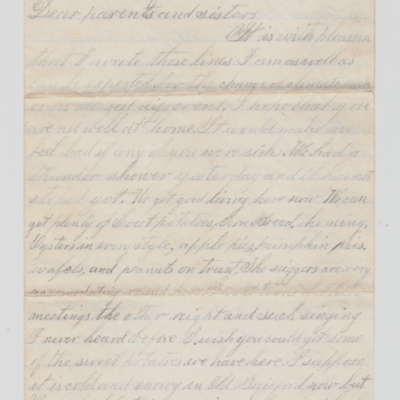 Dear parents and sisters
It is with pleasure
that I write these lines. I am as well as
can be expected for the change of climate
is so different. I hope that you
are all well at home. It would make me
feel bad if any of you were sick. We had a
thunder shower yesterday and it has not
stoped yet. We get good living here now. We can
get plenty of sweet potatoes, corn bread, hominy,
Oysters in every style, apple pies, pumpkin pies,
wafels, and peanuts on trust. The niggers are very
accomodating
meetings the other night and such singing
I never heard before. I wish you could get some
of the sweet potatoes we have here. I suppose
it is cold and snowy in Old Buxford now but